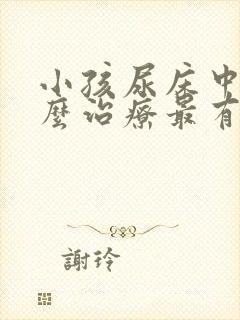 小孩尿床中
麼治療最有
謝玲